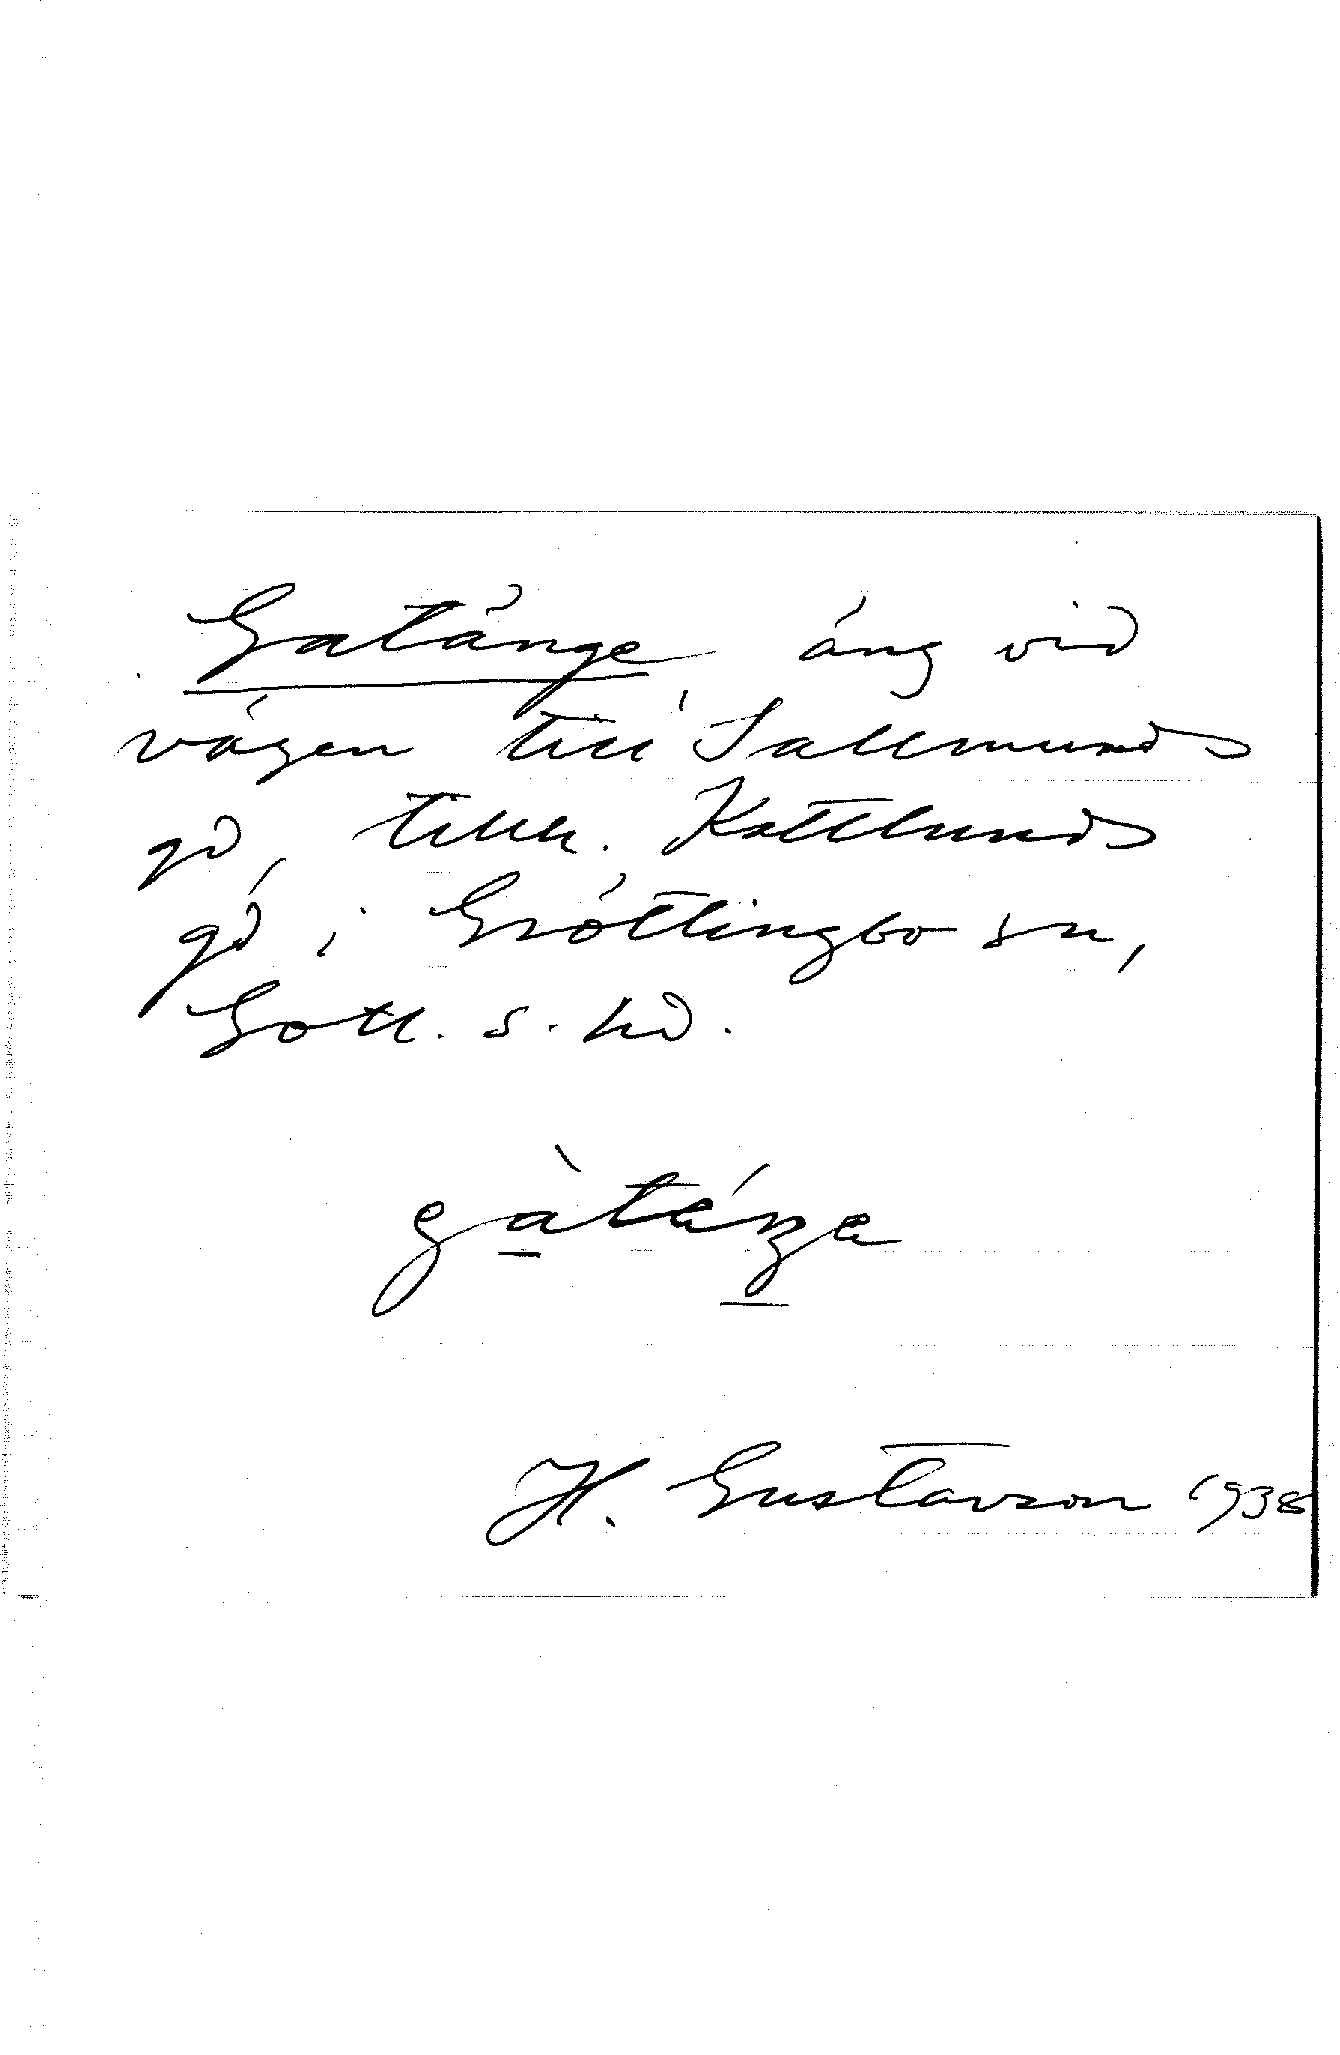 Gatänge äng vid
vägen till Sallmunds
gd, tillh. Kattlunds
gd i Gröttlingbo sn,
Gotl. s. hd.
gàtá̱ŋe
H. Gustavson 1938